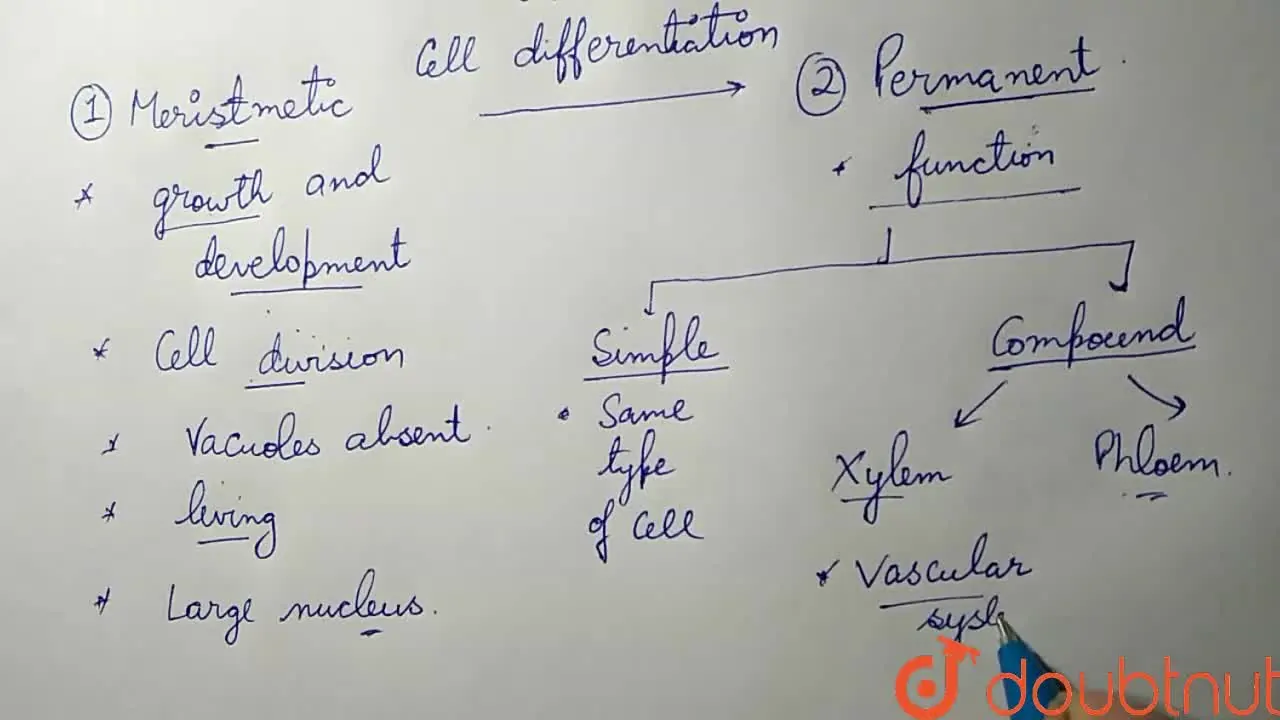 Cell differentiation
① Meristmetic
* growth and
development
* Cell division
* Vacuoles absent.
* living
* Large nucleus.
② Permanent.
* function
Simple
• Same
type
of cell
Compound
Xylem
Phloem.
* Vascular
syst
doubtnut